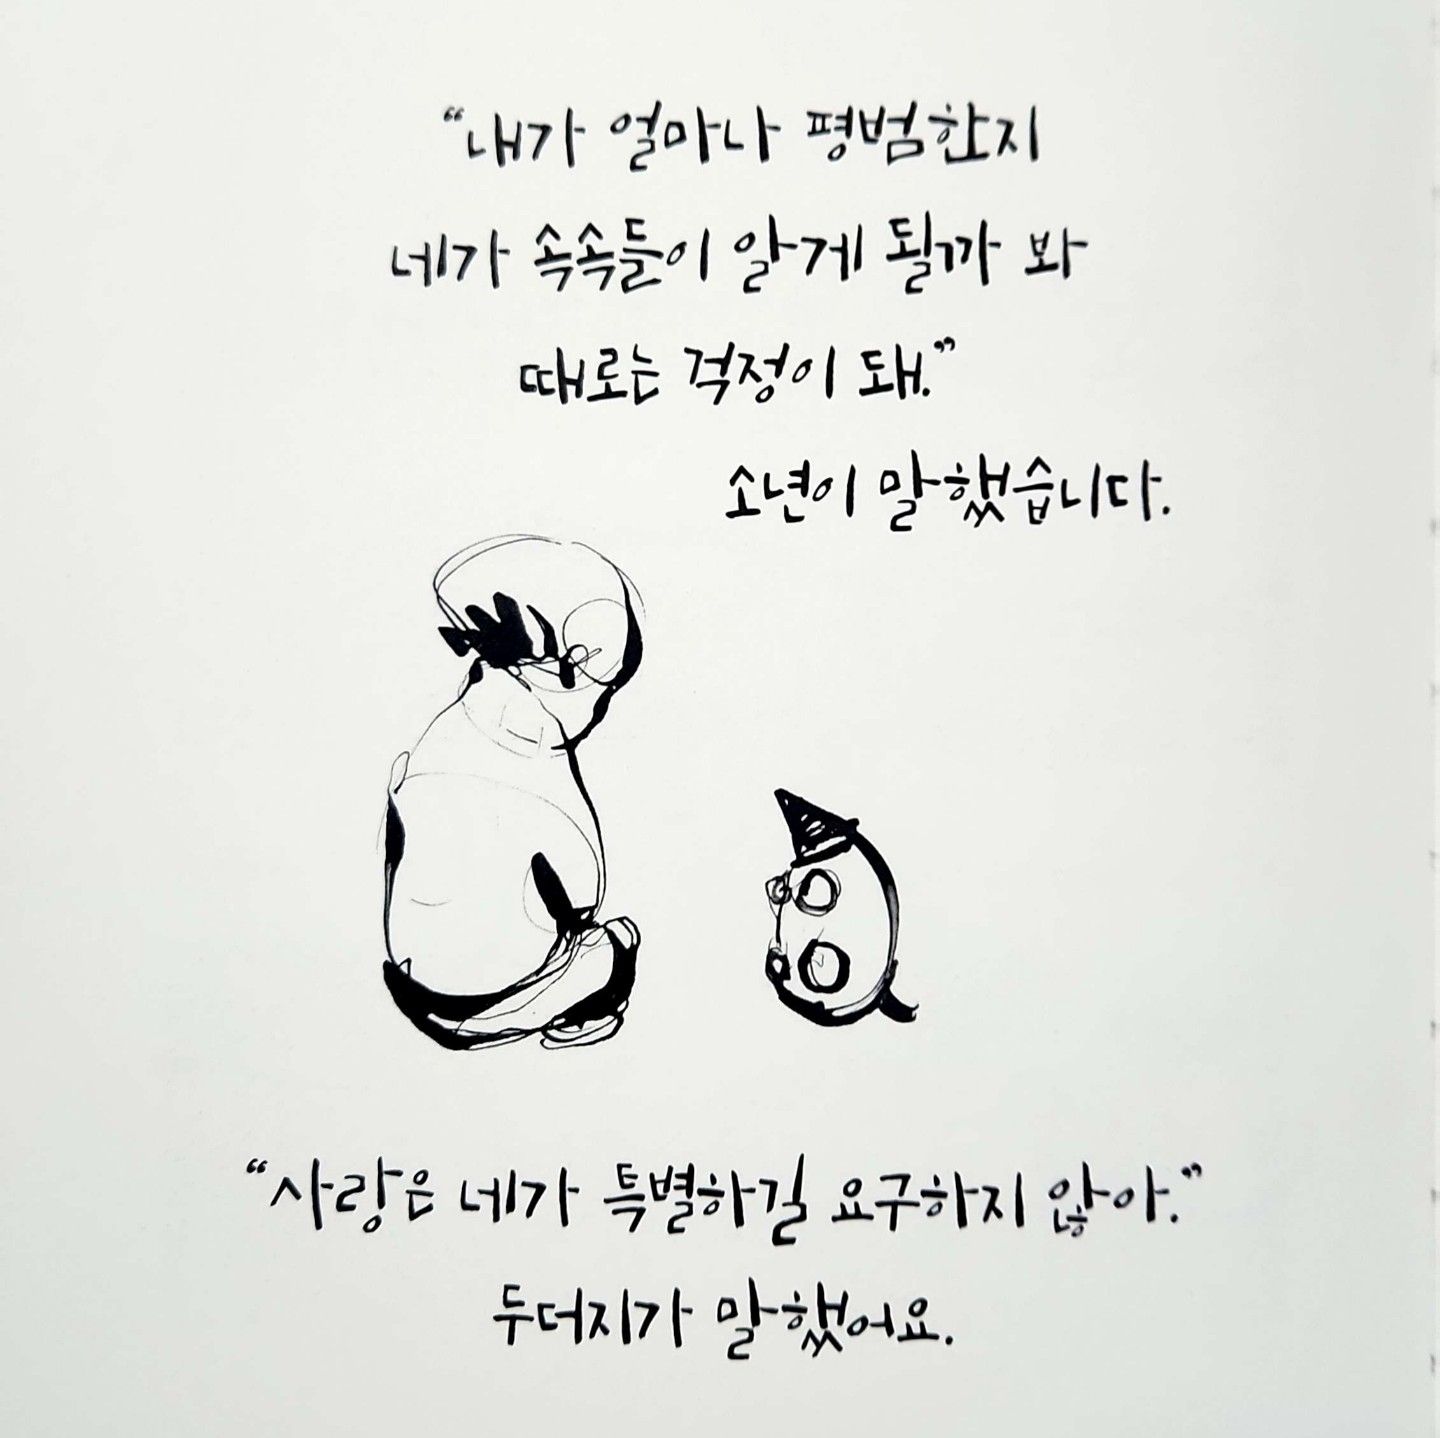 “내가 얼마나 평범한지
네가 속속들이 알게 될까 봐
때로는 걱정이 돼.”
소년이 말했습니다.
“사랑은 네가 특별하길 요구하지 않아.”
두더지가 말했어요.